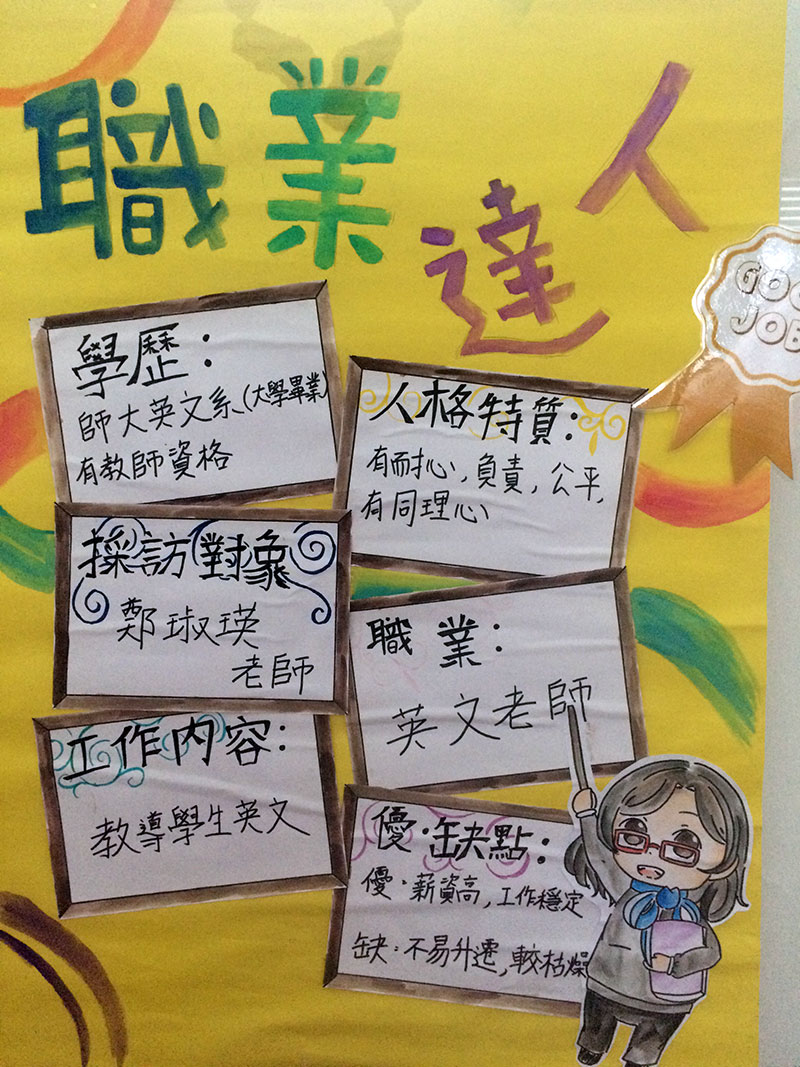 職業達人
GOO
JOB
學歷：
師大英文系(大學畢業)
有教師資格
人格特質：
有耐心，負責，公平，
有同理心
採訪對象
鄭淑瑛
老師
職業：
英文老師
工作內容：
教導學生英文
優·缺點：
優：薪資高，工作穩定
缺：不易升遷，較枯燥